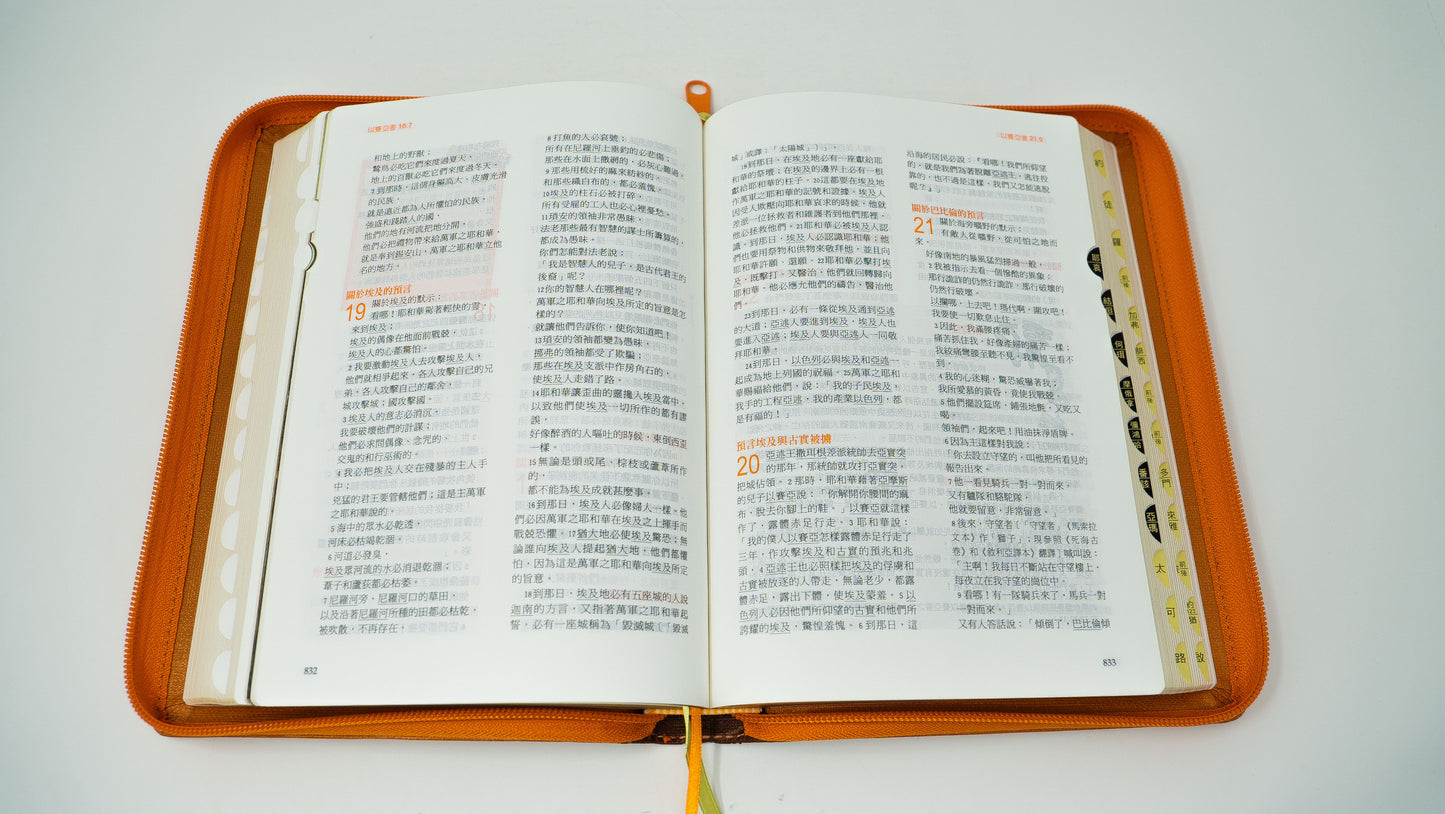 以賽亞書 18:7
和地上的野獸;
鷙鳥必吃它們來度過夏天,
地上的百獸必吃它們來度過冬天。
7 到那時,這個身軀高大、皮膚光滑
的民族,
就是遠近都為人所懼怕的民族,
強盛和踐踏人的國,
他們的地有河流把地分開,
他們必把禮物帶來給萬軍之耶和華,
就是奉到錫安山,萬軍之耶和華立他
名的地方。
關於埃及的預言
19 關於埃及的默示:
看哪!耶和華駕著輕快的雲,
來到埃及;
埃及的偶像在他面前戰兢,
埃及人的心都驚怕。
2 我要激動埃及人去攻擊埃及人,
他們就相爭起來,各人攻擊自己的兄
弟,各人攻擊自己的鄰舍,
城攻擊城;國攻擊國。
3 埃及人的意志必消沉,
我要破壞他們的計謀;
他們必求問偶像、念咒的、
交鬼的和行巫術的。
4 我必把埃及人交在殘暴的主人手
中;
兇猛的君王要管轄他們;這是主萬軍
之耶和華說的。
5 海中的眾水必乾透,
河床必枯竭乾涸。
6 河道必發臭,
埃及眾河流的水必消退乾涸;
葦子和蘆荻都必枯萎。
7 尼羅河旁、尼羅河口的草田,
以及沿著尼羅河所種的田都必枯乾,
被吹散,不再存在。
832
8 打魚的人必哀號;
所有在尼羅河上垂釣的必悲傷;
那些在水面上撒網的,必灰心難過。
9 那些用梳好的麻來紡紗的,
和那些織白布的,都必羞愧。
10 埃及的柱石必被打碎,
所有受雇的工人也必心裡憂愁。
11 瑣安的領袖非常愚昧,
法老那些最有智慧的謀士所籌算的,
都成為愚昧。
你們怎能對法老說:
「我是智慧人的兒子,是古代君王的
後裔」呢?
12 你的智慧人在哪裡呢?
萬軍之耶和華向埃及所定的旨意是怎
樣的?
就讓他們告訴你,使你知道吧!
13 瑣安的領袖都變為愚昧,
挪弗的領袖都受了欺騙;
那些在埃及支派中作房角石的,
使埃及人走錯了路。
14 耶和華讓歪曲的靈攙入埃及當中,
以致他們使埃及一切所作的都有謬
誤,
好像醉酒的人嘔吐的時候,東倒西歪
一樣。
15 無論是頭或尾、棕枝或蘆葦所作
的,
都不能為埃及成就甚麼事。
16 到那日,埃及人必像婦人一樣。他
們必因萬軍之耶和華在埃及之上揮手而
戰兢恐懼。17 猶大地必使埃及驚恐;無
論誰向埃及人提起猶大地,他們都懼
怕,因為這是萬軍之耶和華向埃及所定
的旨意。
18 到那日,埃及地必有五座城的人說
迦南的方言,又指著萬軍之耶和華起
誓,必有一座城稱為「毀滅城」(「毀滅
以賽亞書 21:9
城」或譯:「太陽城」)。
19 到那日,在埃及地必有一座獻給耶
和華的祭壇;在埃及的邊界上必有一根
獻給耶和華的柱子。20 這都要在埃及地
作萬軍之耶和華的記號和證據。埃及人
因受人欺壓向耶和華哀求的時候,他就
差派一位拯救者和維護者到他們那裡,
他必拯救他們。21 耶和華必被埃及人認
識。到那日,埃及人必認識耶和華;他
們也要用祭物和供物來敬拜他,並且向
耶和華許願、還願。22 耶和華必擊打埃
及,既擊打,又醫治,他們就回轉歸向
耶和華,他必應允他們的禱告,醫治他
們。
23 到那日,必有一條從埃及通到亞述
的大道;亞述人要進到埃及,埃及人也
要進入亞述;埃及人要與亞述人一同敬
拜耶和華。
24 到那日,以色列必與埃及和亞述一
起成為地上列國的祝福。25 萬軍之耶和
華賜福給他們,說:「我的子民埃及,
我手的工程亞述,我的產業以色列,都
是有福的!」
預言埃及與古實被擄
20 亞述王撒珥根差派統帥去亞實突
的那年,那統帥就攻打亞實突,
把城佔領。2 那時,耶和華藉著亞摩斯
的兒子以賽亞說:「你解開你腰間的麻
布,脫去你腳上的鞋。」以賽亞就這樣
作了,露體赤足行走。3 耶和華說:
「我的僕人以賽亞怎樣露體赤足行走了
三年,作攻擊埃及和古實的預兆和兆
頭,4 亞述王也必照樣把埃及的俘虜和
古實被放逐的人帶走,無論老少,都露
體赤足,露出下體,使埃及蒙羞。5 以
色列人必因他們所仰望的古實和他們所
誇耀的埃及,驚惶羞愧。6 到那日,這
沿海的居民必說:『看哪!我們所仰望
的,就是我們為著脫離亞述王,逃往投
靠的,也不過是這樣,我們又怎能逃脫
呢?』」
關於巴比倫的預言
21 關於海旁曠野的默示:
有敵人從曠野,從可怕之地而
來,
好像南地的暴風猛烈掃過一般。
2 我被指示去看一個悽酷的異象:
那行詭詐的仍然行詭詐,那行破壞的
仍然行破壞。
以攔哪,上去吧!瑪代啊,圍攻吧!
我要使一切歎息止住。
3 因此,我滿腰疼痛,
痛苦抓住我,好像產婦的痛苦一樣;
我絞痛彎腰至聽不見,我驚惶至看不
到。
4 我的心迷糊,驚恐威嚇著我;
我所愛慕的黃昏,竟使我戰兢。
5 他們擺設筵席,鋪張地氈,又吃又
喝。
領袖們,起來吧!用油抹淨盾牌。
6 因為主這樣對我說:
「你去設立守望的,叫他把所看見的
報告出來。
7 他一看見騎兵一對一對而來,
又有驢隊和駱駝隊,
他就要留意,非常留意。」
8 後來,守望者(「守望者」《馬索拉
文本》作「獅子」;現參照《死海古
卷》和《敘利亞譯本》翻譯)喊叫說:
「主啊!我每日不斷站在守望樓上,
每夜立在我守望的崗位中。
9 看哪!有一隊騎兵來了,馬兵一對
一對而來。」
又有人答話說:「傾倒了,巴比倫傾
833
約
徒
羅
耶哀
結但
何珥
摩俄拿
彌鴻哈
番該
亞瑪
加弗
腓西
多門
來雅
太
可
路
啟